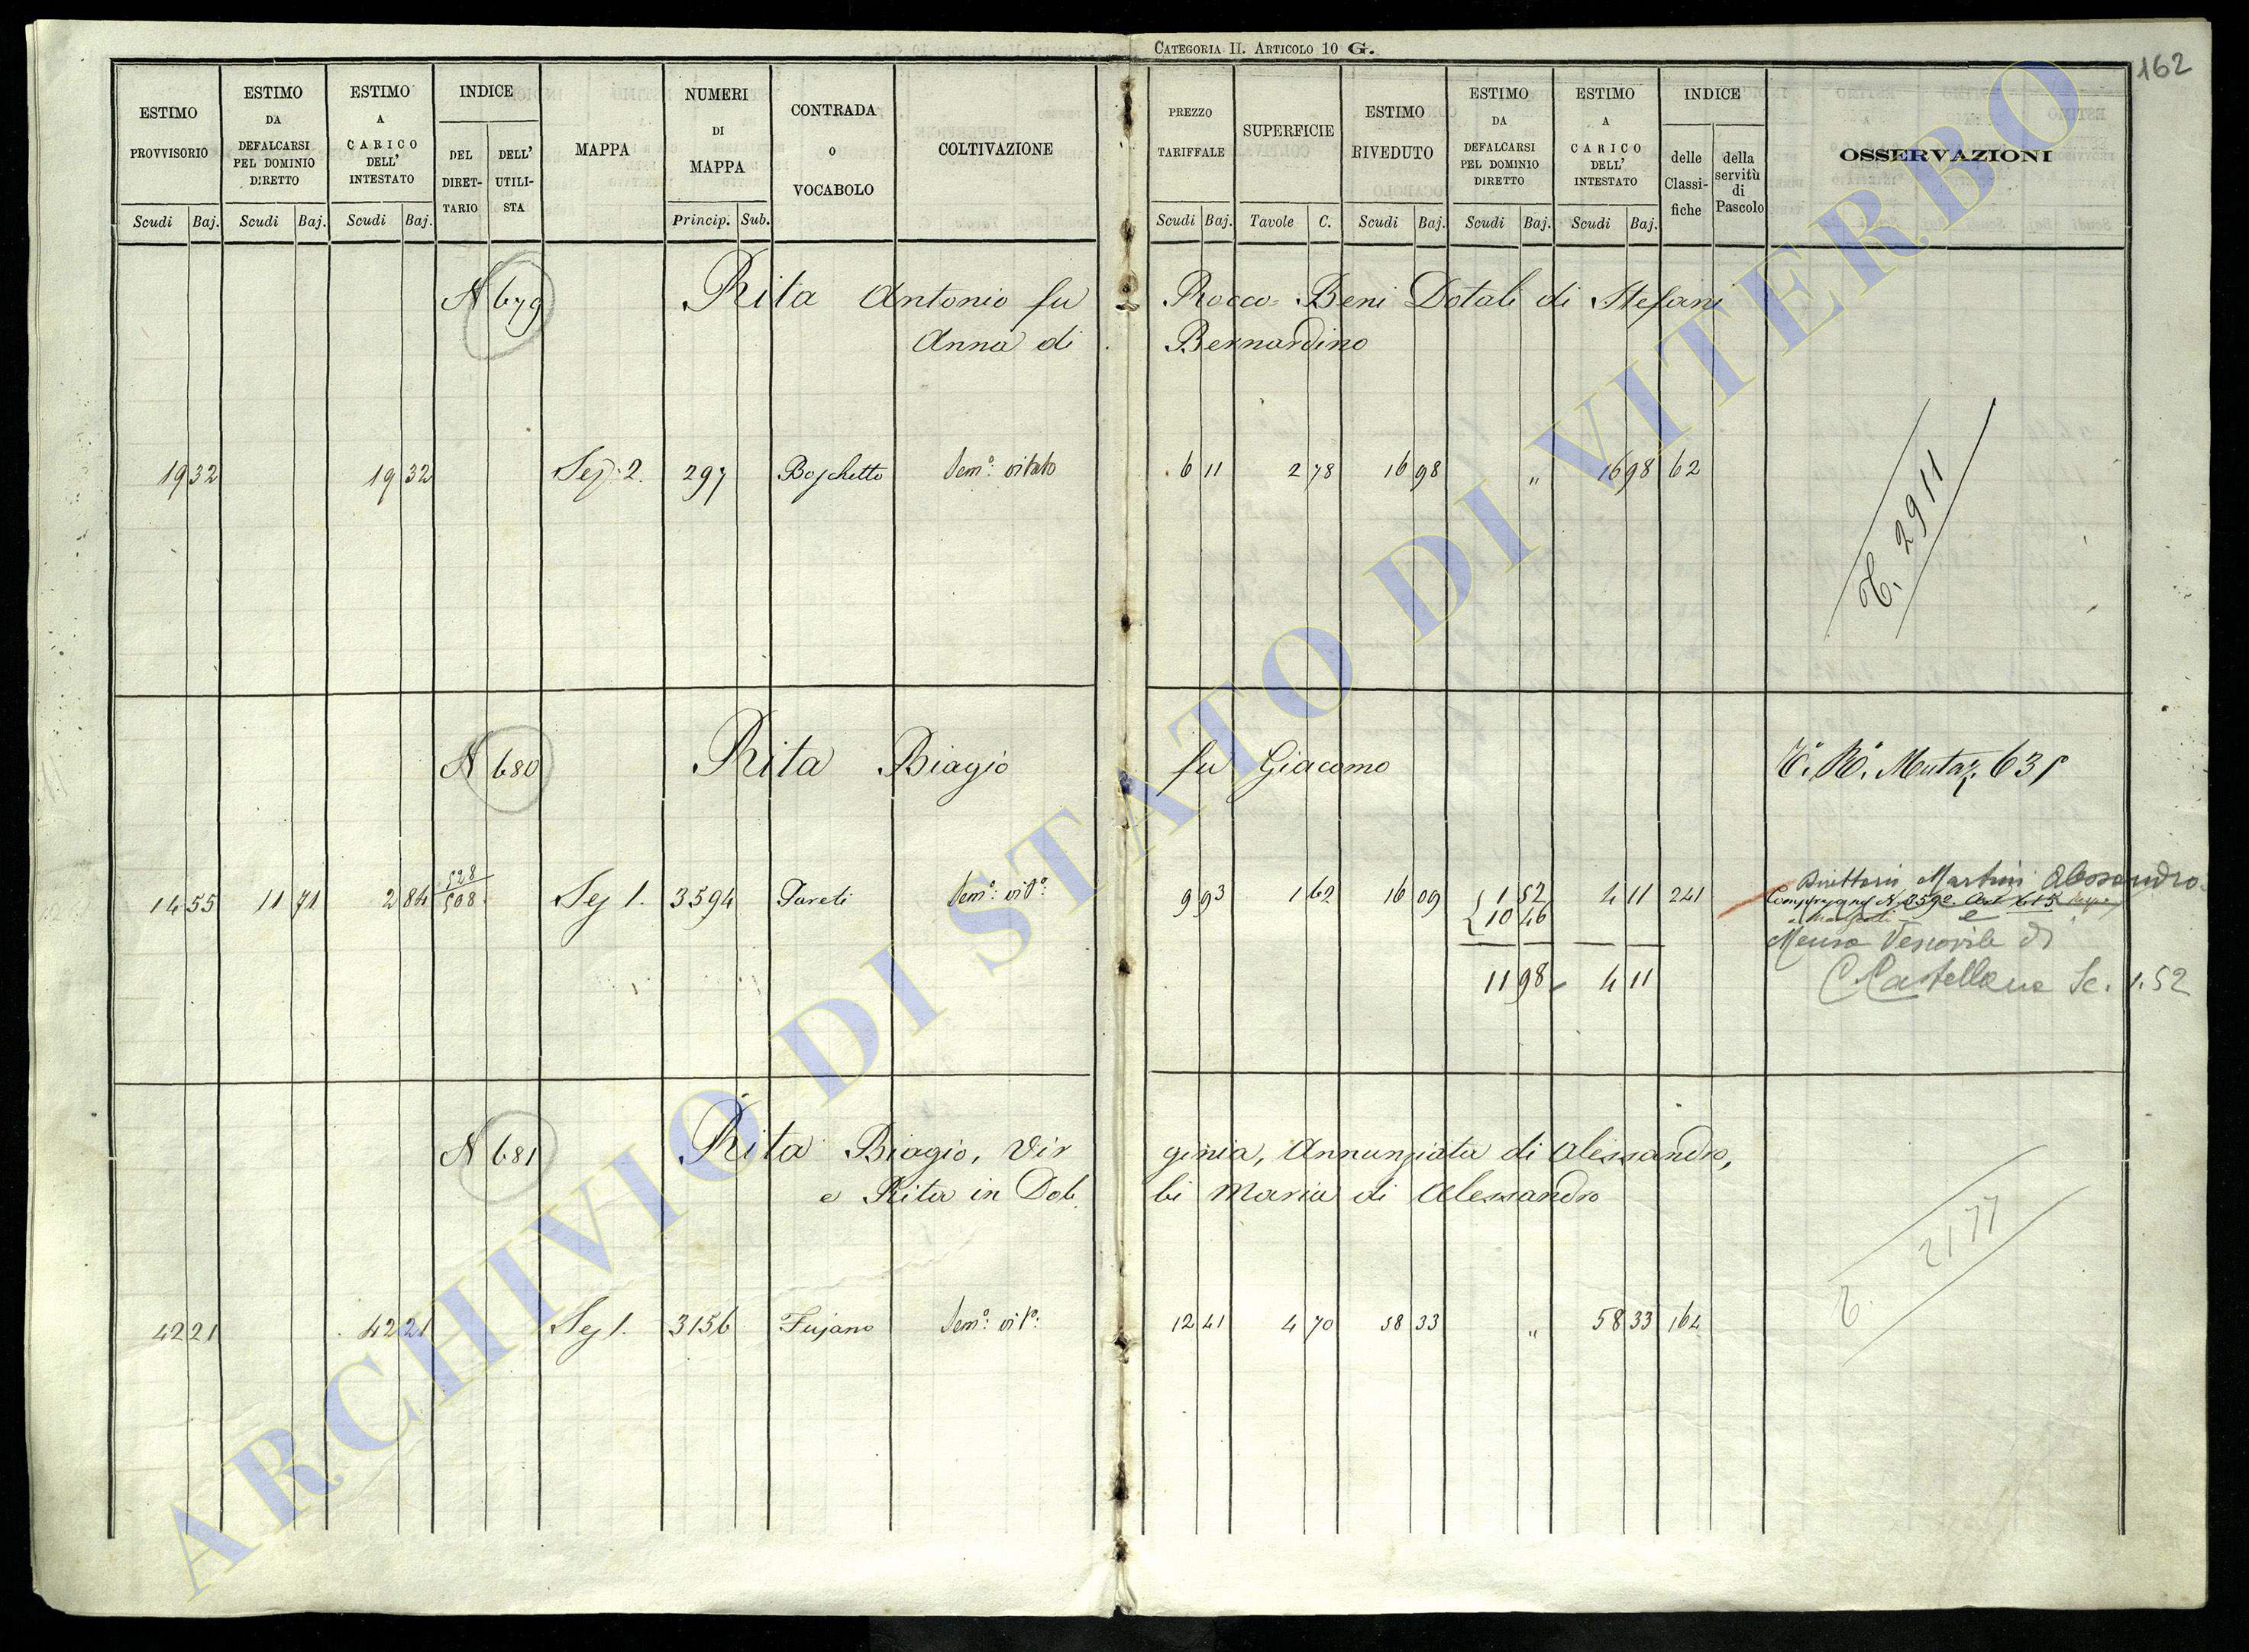 CATEGORIA II. ARTICOLO 10 G.
162
ESTIMO PROVVISORIO Scudi Baj.
ESTIMO DA DEFALCARSI PEL DOMINIO DIRETTO Scudi Baj.
ESTIMO A CARICO DELL' INTESTATO Scudi Baj.
INDICE DEL DIRET- TARIO DELL' UTILI- STA
MAPPA
NUMERI DI MAPPA Princip. Sub.
CONTRADA O VOCABOLO
COLTIVAZIONE
PREZZO TARIFFALE Scudi Baj.
SUPERFICIE Tavole C.
ESTIMO RIVEDUTO Scudi Baj.
ESTIMO DA DEFALCARSI PEL DOMINIO DIRETTO Scudi Baj.
ESTIMO A CARICO DELL' INTESTATO Scudi Baj.
INDICE delle Classi- fiche della servitù di Pascolo
OSSERVAZIONI
N 679 Rita Antonio fu Rocco = Beni Dotali di Stefani
Anna di Bernardino
19 32 19 32 Sez. 2. 297 Boschetto Semo: vitato 6 11 2 78 16 98 " 16 98 62
2911
N 680 Rita Biagio fu Giacomo
Mutaz. 635
14 55 11 71 2 84 528 508 Sez 1. 3594 Sem.o: vito: 9 93 1 62 16 09 1 52 4 11 241
10 46
11 98 4 11
Direttari Martini Alessandro
e
Mensa Vescovile di
C Castellana Sc. 1.52
N 681 Rita Biagio, Vir ginia, Annunziata di Alessandro,
e Rita in Dob bi Maria di Alessandro
42 21 42 21 Sez 1. 3156 Fujano Semo: vito: 12 41 4 70 58 33 " 58 33 164
2177
ARCHIVIO DI STATO DI VITERBO